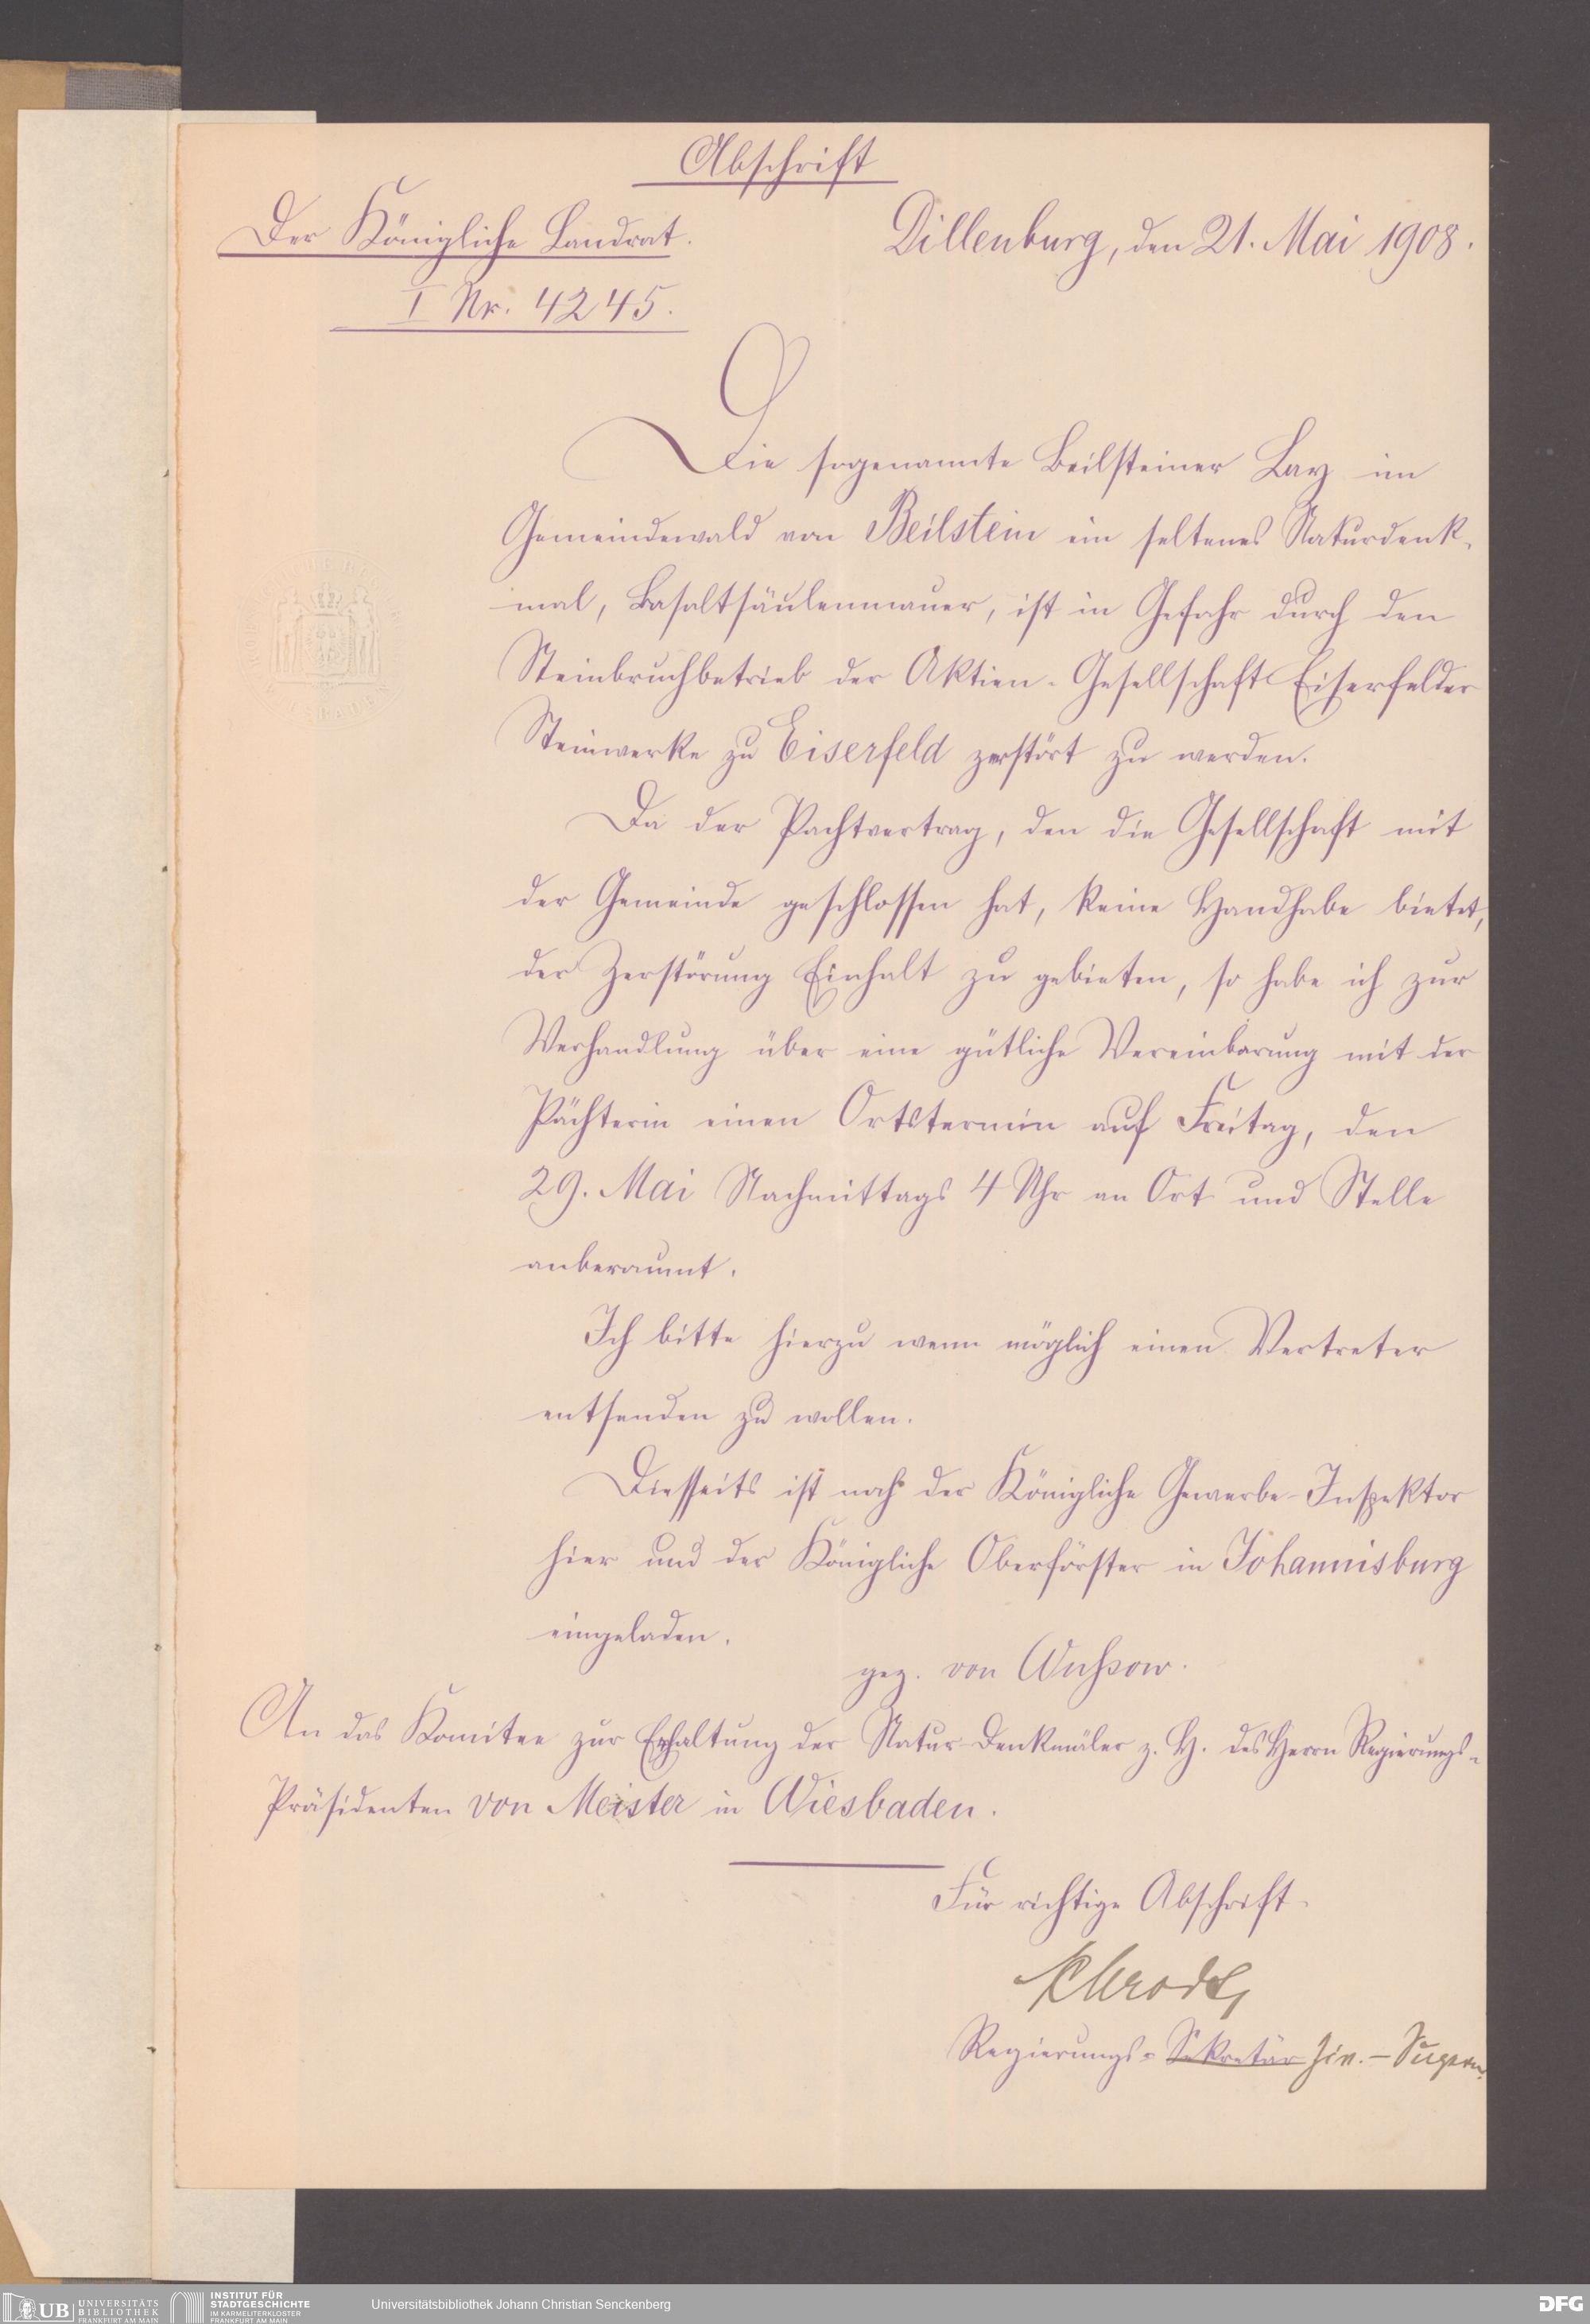 Abschrift
Der Königliche Landrat.
Dillenburg, den 21. Mai 1908.
I Nr. 4245.
Die sogenannte Beilsteiner Lay im
Gemeindewald von Beilstein ein seltenes Naturdenk-
mal, Basaltsäulenmauer, ist in Gefahr durch den
Steinbruchbetrieb der Aktien-Gesellschaft Eiserfelder
Steinwerke zu Eiserfeld zerstört zu werden.
Da der Pachtvertrag, den die Gesellschaft mit
der Gemeinde geschlossen hat, keine Handhabe bietet,
der Zerstörung Einhalt zu gebieten, so habe ich zur
Verhandlung über eine gütliche Vereinbarung mit der
Pächterin einen Ortstermin auf Freitag, den
29. Mai Nachmittags 4 Uhr an Ort und Stelle
anberaumt.
Ich bitte hierzu wenn möglich einen Vertreter
entsenden zu wollen.
Diesseits ist noch der Königliche Gewerbe-Inspektor
hier und der Königliche Oberförster in Johannisburg
eingeladen.
gez. von Wussow.
An das Komitee zur Erhaltung der Natur-Denkmäler z. H. des Herrn Regierungs-
Präsidenten von Meister in Wiesbaden.
Für richtige Abschrift
Regierungs-Sekretär
UB UNIVERSITÄTS
BIBLIOTHEK
FRANKFURT AM MAIN
INSTITUT FÜR
STADTGESCHICHTE
IM KARMELITERKLOSTER
FRANKFURT AM MAIN
Universitätsbibliothek Johann Christian Senckenberg
DFG